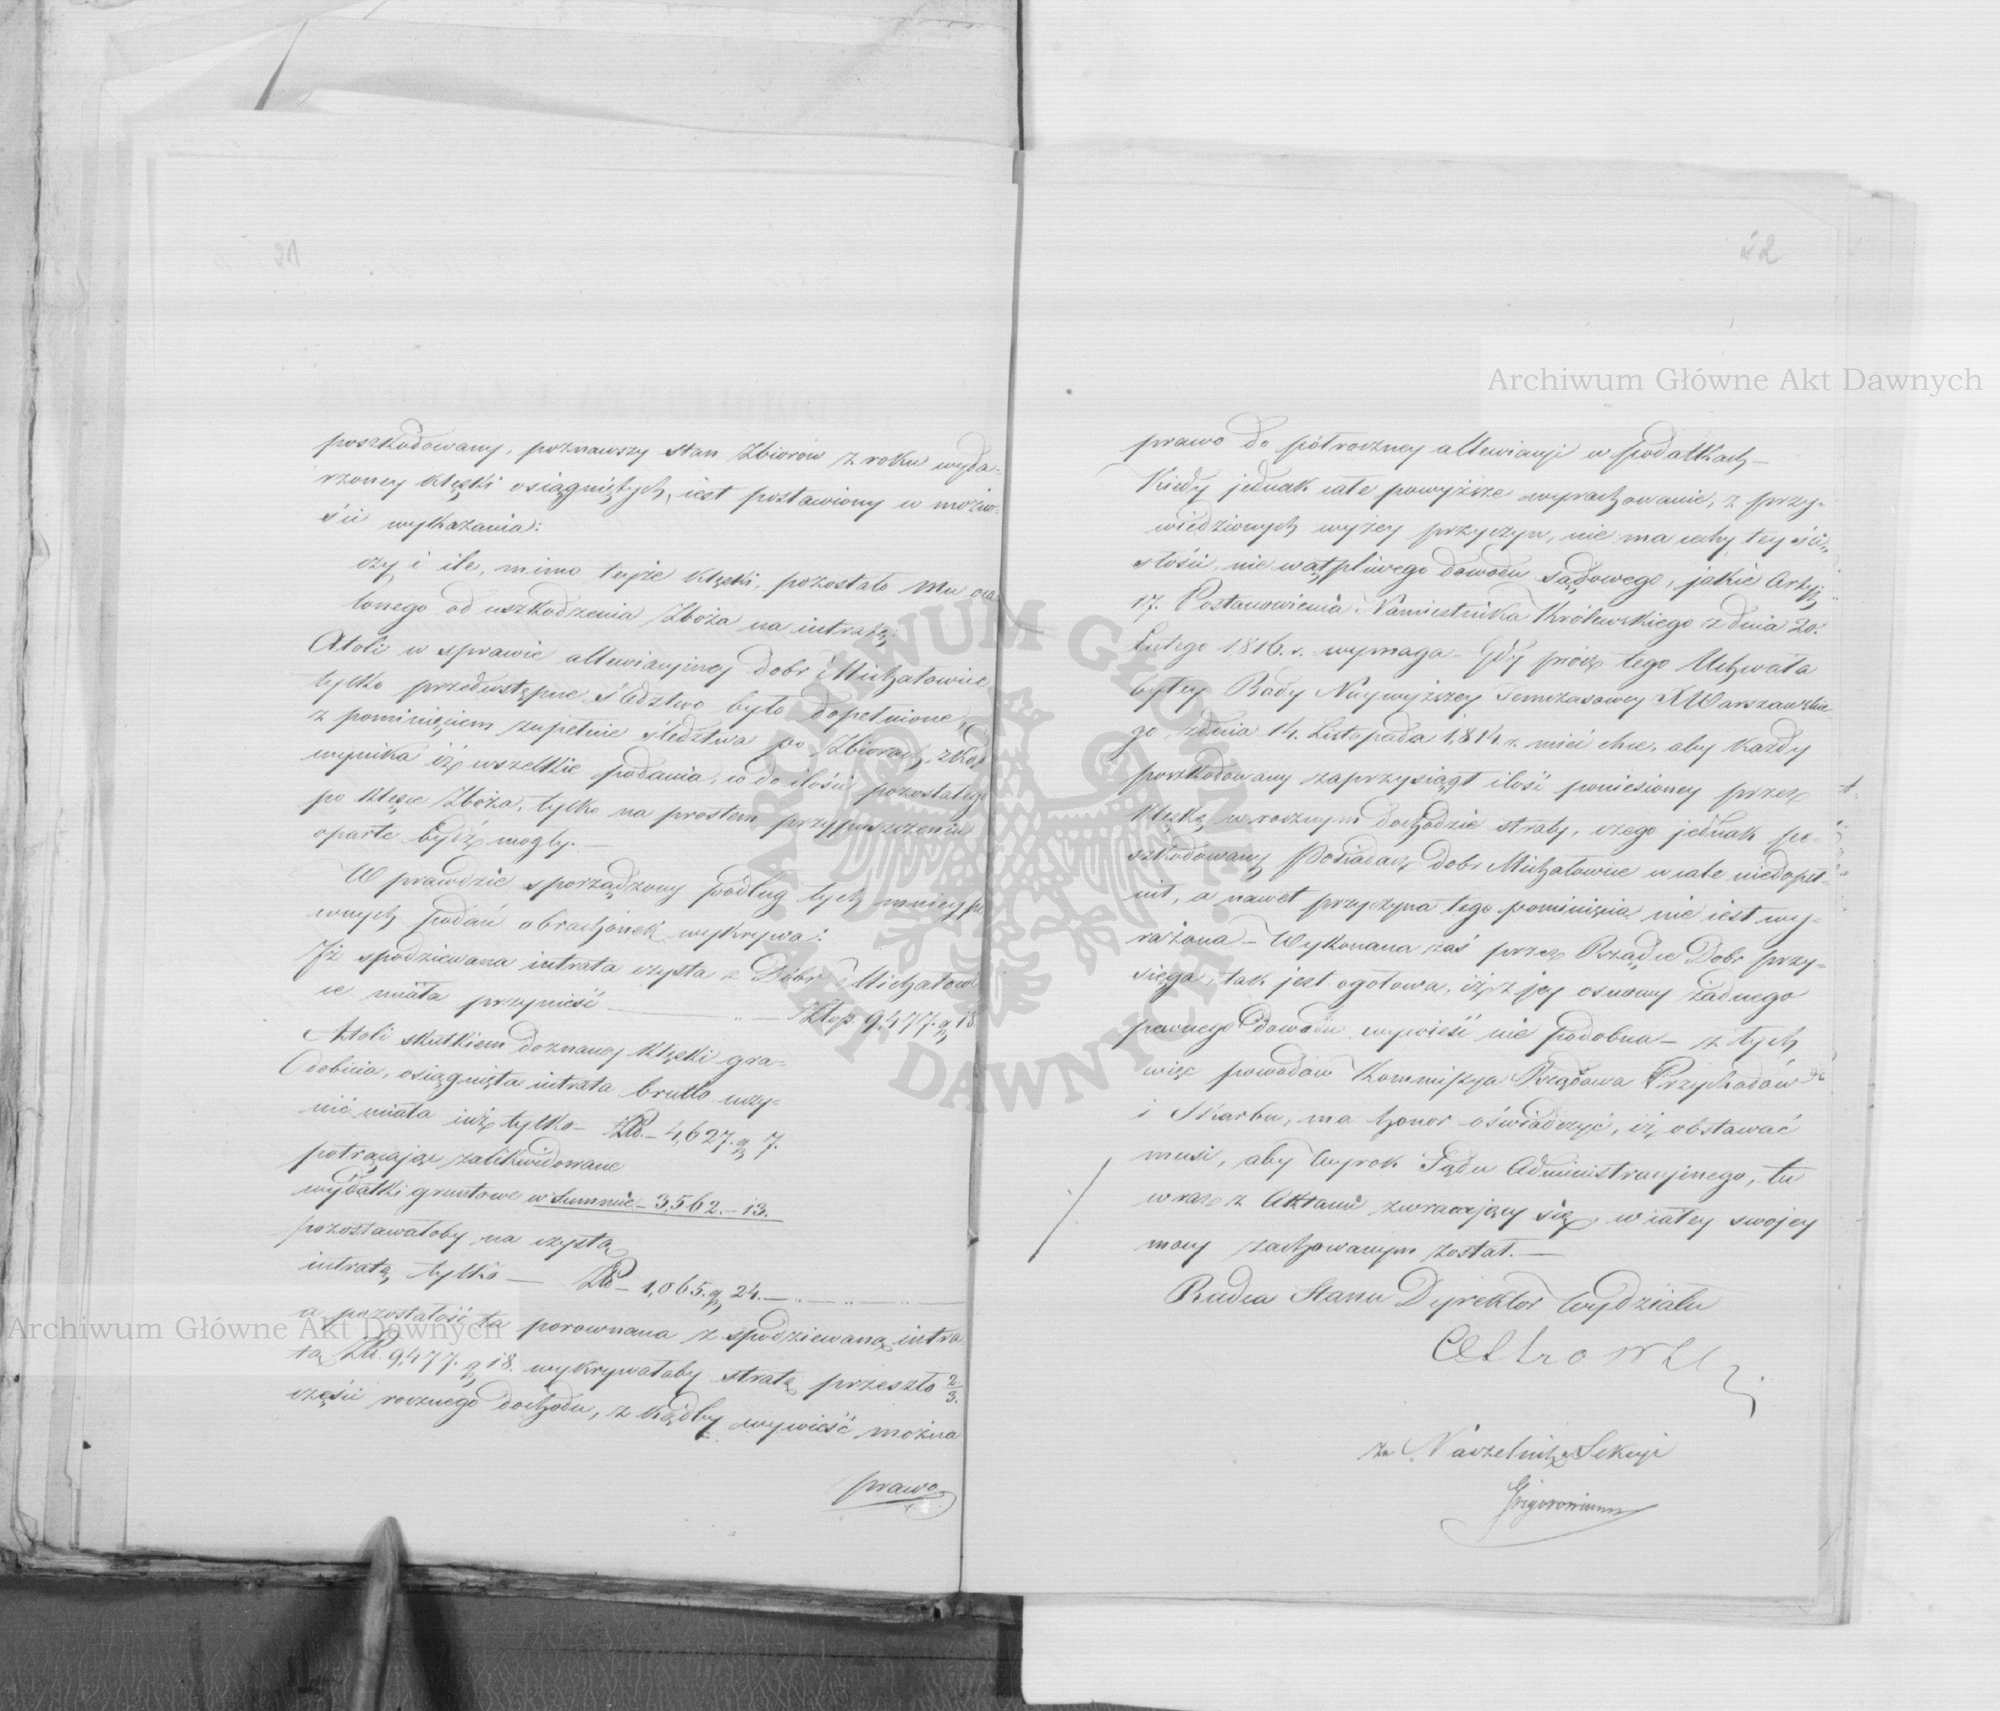 poszkodowany, poznawszy stan Zbiorów z roku wyda-
rzoney klęski osiągniętych, iest postawiony w możno-
ści wykazania:
czy i ile, mimo teyże klęski, pozostało mu oca-
lonego od uszkodzenia Zboża na intratę;
Atoli w sprawie allewiacyjnej dobr Michałowice
tylko przedwstępne śledztwo było dopełnione,
z pominięciem zupełnie śledztwa po Zbiorach, zkąd
wynika iż wszelkie podania, co do ilości pozostałego
po klęsce Zboża, tylko na prostem przypuszczeniu
oparte bydź mogły. —
W prawdzie sporządzony podług tych mniey pe
wnych podań obrachónek wykrywa:
Iż spodziewana intrata czysta z Dóbr Michałowi
ce miała przynieść — Złop. 9,477. g 18
Atoli skutkiem doznaney klęski gra-
dobicia, osiągnięta intrata brutto uczy-
nić miała iuż tylko — Zł. — 4,627. g 7.
potrącając zalikwidowane
wydatki gruntowe w Summie — 3,562. — 13.
pozostawałoby na czystą
intratę tylko — Zł — 1,065. g 24. —
a pozostałość ta porównana z spodziewaną intra
tą Zł. 9,477. g 18. wykrywałaby stratę przeszło 2/3.
części rocznego dochodu, z kądby wywieść można
prawo
22
prawo do półroczney allewiacyi w podatkach —
Kiedy jednak całe powyższe wyrachowanie, z przy-
wiedzionych wyżey przyczyn, nie ma cechy tey ści-
słości, nie wątpliwego dowodu sądowego, jakie Arty:
17. Postanowienia Namiestnika Królewskiego z dnia 20.
Lutego 1816. r. wymaga — Gdy prócz tego Uchwała
byłey Rady Naywyższey Temczasowey X Warszawskie
go z dnia 14. Listopada 1,814 r. mieć chce, aby każdy
poszkodowany zaprzysiągł ilość poniesioney przez
klęskę w rocznym dochodzie straty, czego jednak po-
szkodowany Posiadacz dobr Michałowice wcale niedopeł-
nił, a nawet przyczyna tego pominięcia nie iest wy-
rażona — Wykonana zaś przez Rządcę Dobr przy-
sięga, tak jest ogołowa, iż z jey osnowy żadnego
pewnego dowodu wywieść nie podobna — z tych
więc powodów Kommissya Rządowa Przychodów
i Skarbu, ma honor oświadczyć, iż obstawać
musi, aby Wyrok Sądu Administracyjnego, tu
wraz z Aktami zwracający się, w całey swojey
mocy zachowanym został. —
Radca Stanu Dyrektor Wydziału
za Naczelnika Sekcyi
Archiwum Główne Akt Dawnych
Archiwum Główne Akt Dawnych
ARCHIWUM GŁÓWNE AKT DAWNYCH